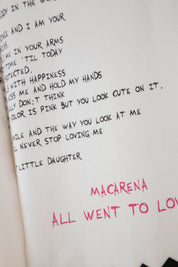 DDY IN THE WO
AND I AM YOUR
ME IN YOUR ARMS
TIME 'TIL TODAY
PROTECTED.
WITH HAPPINESS
ISS ME AND HOLD MY HANDS
LLY DON;T THINK
OLOR IS PINK BUT YOU LOOK CUTE ON IT.
ILE AND THE WAY YOU LOOK AT ME
LL NEVER STOP LOVING ME
LITTLE DAUGHTER
MACARENA
ALL WENT TO LOV